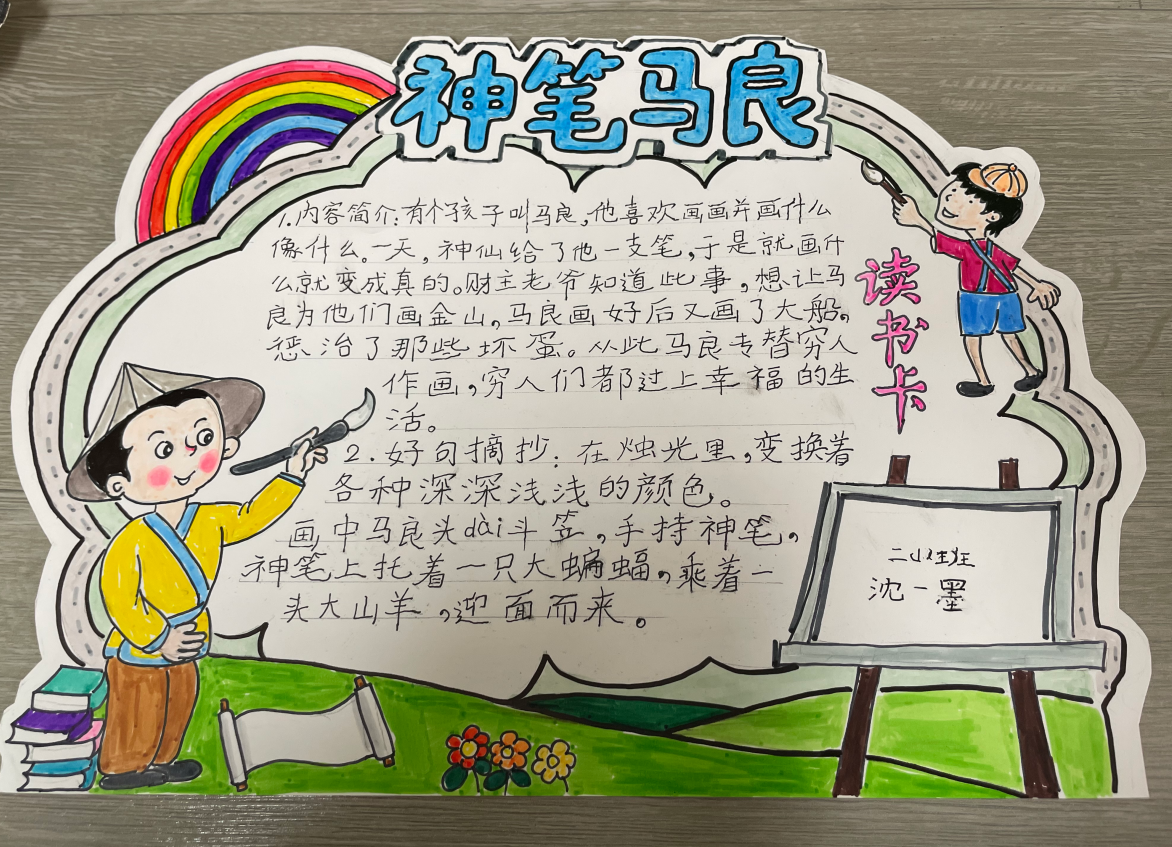 神笔马良
读书卡
1.内容简介:有个孩子叫马良,他喜欢画画并画什么
像什么。一天,神仙给了他一支笔,于是就画什
么就变成真的。财主老爷知道此事,想让马
良为他们画金山,马良画好后又画了大船,
惩治了那些坏蛋。从此马良专替穷人
作画,穷人们都过上幸福的生
活。
2.好句摘抄:在烛光里,变换着
各种深深浅浅的颜色。
画中马良头dài斗笠,手持神笔,
神笔上托着一只大蝙蝠,乘着一
头大山羊,迎面而来。
沈一墨